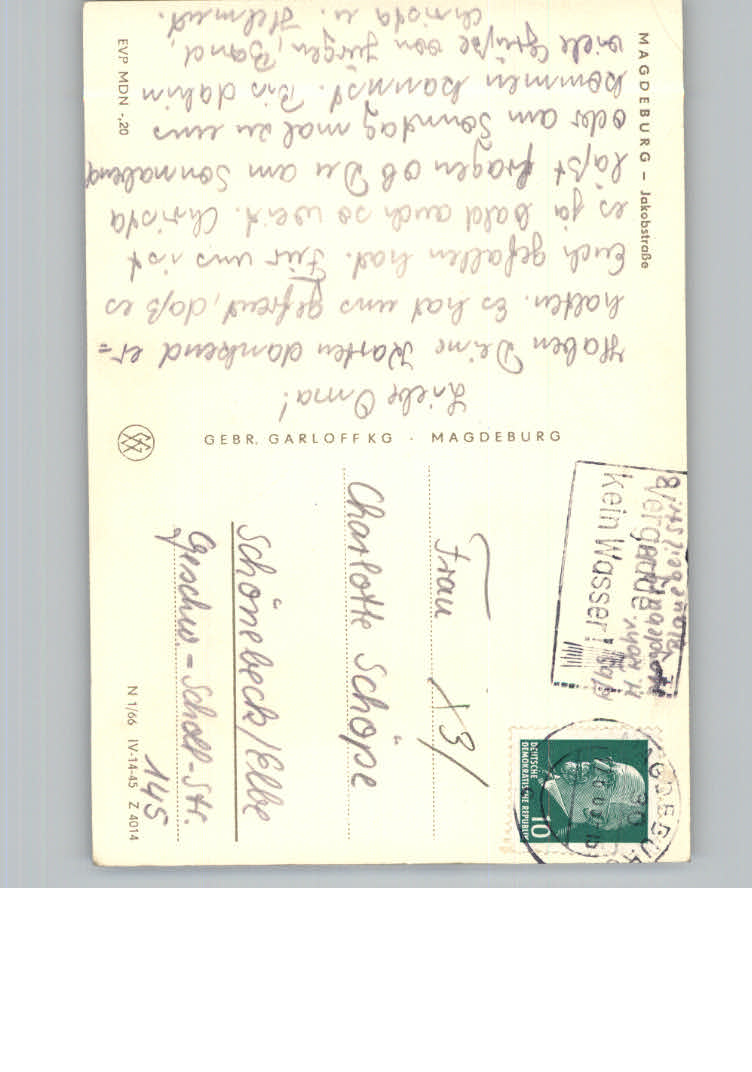 MAGDEBURG – Jakobstraße
Liebe Oma!
Haben Deine Karten dankend er=
halten. Es hat uns gefreut, daß es
Euch gefallen hat. Für uns ist
es ja bald auch so weit. Christa
läßt fragen ob Du am Sonnabend
oder am Sonntag mal zu uns
kommen kannst. Bis dahin
viele Grüße von Jürgen,
Christa u. Helmut.
EVP MDN -,20
GEBR. GARLOFF KG · MAGDEBURG
Vergeude
kein Wasser!
MAGDEBURG
DEUTSCHE
DEMOKRATISCHE REPUBLIK
10
Frau
Charlotte Schöpe
Schönebeck/Elbe
Geschw.-Scholl-Str.
145
N 1/66 IV-14-45 Z 4014